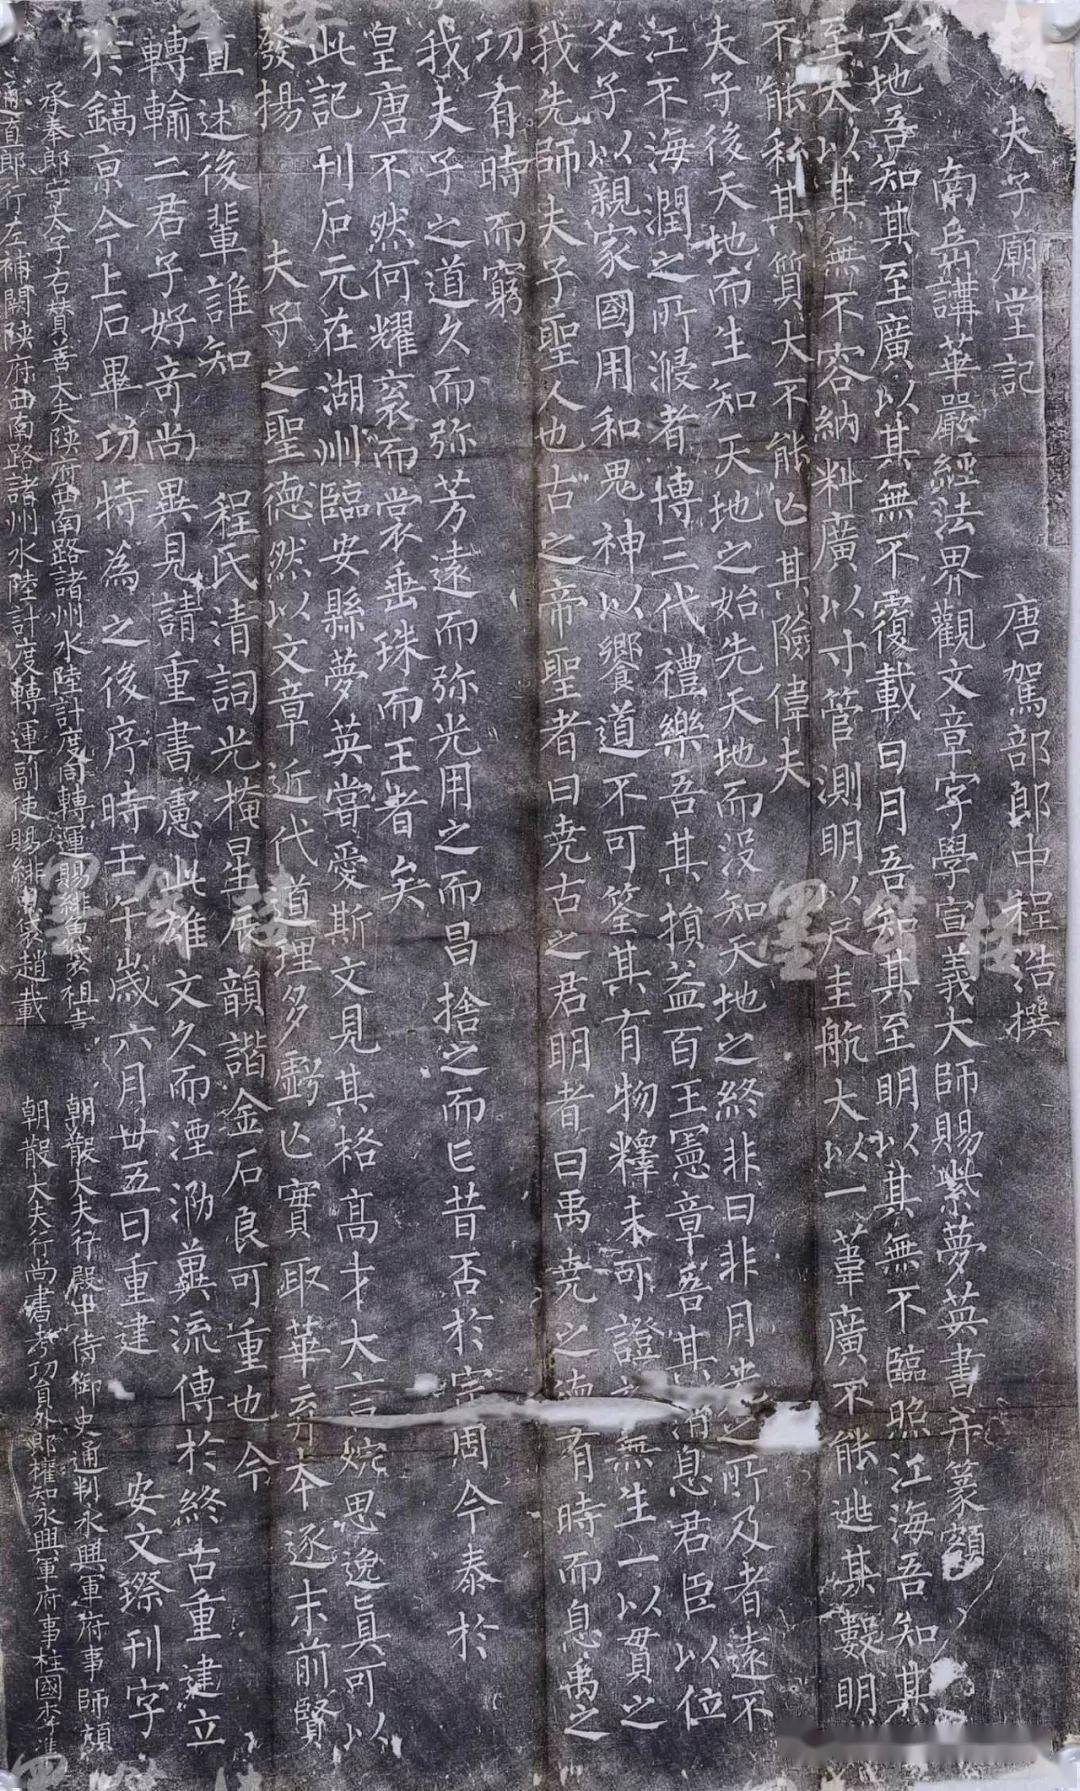 夫子廟堂記　唐駕部郎中程浩撰
南岳講華嚴經法界觀文章字學宣義大師賜紫夢英書并篆額
天地吾知其至廣以其無不覆載日月吾知其至明以其無不臨照江海吾知其
至大以其無不容納料廣以寸管測明以尺圭航大以一葦廣不能逃其數明
不能私其質大不能亡其險偉夫
夫子後天地而生知天地之始先天地而没知天地之終非日非月光之所及者遠不
江不海潤之所浸者博三代禮樂吾其損益百王憲章吾其消息君臣以位
父子以親家國用和鬼神以饗道不可筌其有物釋未可證於無生一以貫之
我先師夫子聖人也古之帝聖者曰堯古之君明者曰禹堯之德有時而息禹之
功有時而窮
我夫子之道久而弥芳遠而弥光用之而昌捨之而亡昔否於宗周今泰於
皇唐不然何耀袞而裳垂珠而王者矣
此記刊石元在湖州臨安縣夢英嘗愛斯文見其格高才大言婉思逸真可以
發揚　夫子之聖德然以文章近代道理多虧亡實取華弃本逐末前賢
直述後輩誰知　程氏清詞光揜星辰韻諧金石良可重也今
轉輸二君子好奇尚異見請重書慮此雄文久而湮泐冀流傳於終古重建立
於鎬京今上石畢功特為之後序時壬午歲六月廿五日重建　安文璨刊字
承奉郎守太子右贊善大夫陕府西南路諸州水陸計度同轉運賜緋魚袋祖吉　朝散大夫行殿中侍御史通判永興軍府事師頏
通直郎行左補闕陕府西南路諸州水陸計度轉運副使賜緋魚袋趙載　朝散大夫行尚書考功員外郎權知永興軍府事柱國宋準
墨笙楼
墨笙楼